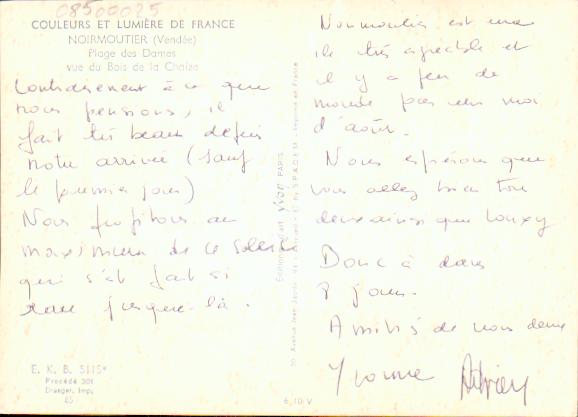 08500025
COULEURS ET LUMIÈRE DE FRANCE
NOIRMOUTIER (Vendée)
Plage des Dames
vue du Bois de la Chaize
Contrairement à ce que
nous pensions, il
fait très beau depuis
notre arrivée (sauf
le premier jour)
Nous profitons au
maximum de ce soleil
qui s'est fait si
rare jusque-là.
E. K. B. 5115*
Procédé 301
Draeger, Imp.
65
Editions d'art yvon PARIS
by SPADEM - Imprimé en France
6,10 V
Noirmoutier est une
île très agréable et
il y a peu de
monde pour un mois
d'août.
Nous espérons que
vous allez bien tous
deux ainsi que
Donc à dans
8 jours.
Amitiés de nous deux
Yvonne